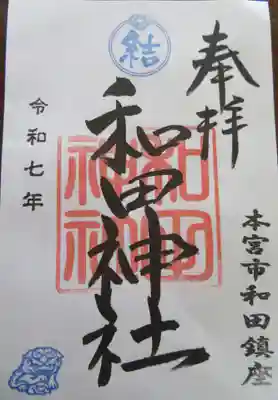 奉拝
本宮市和田鎮座
結
和田神社
和田神社
令和七年